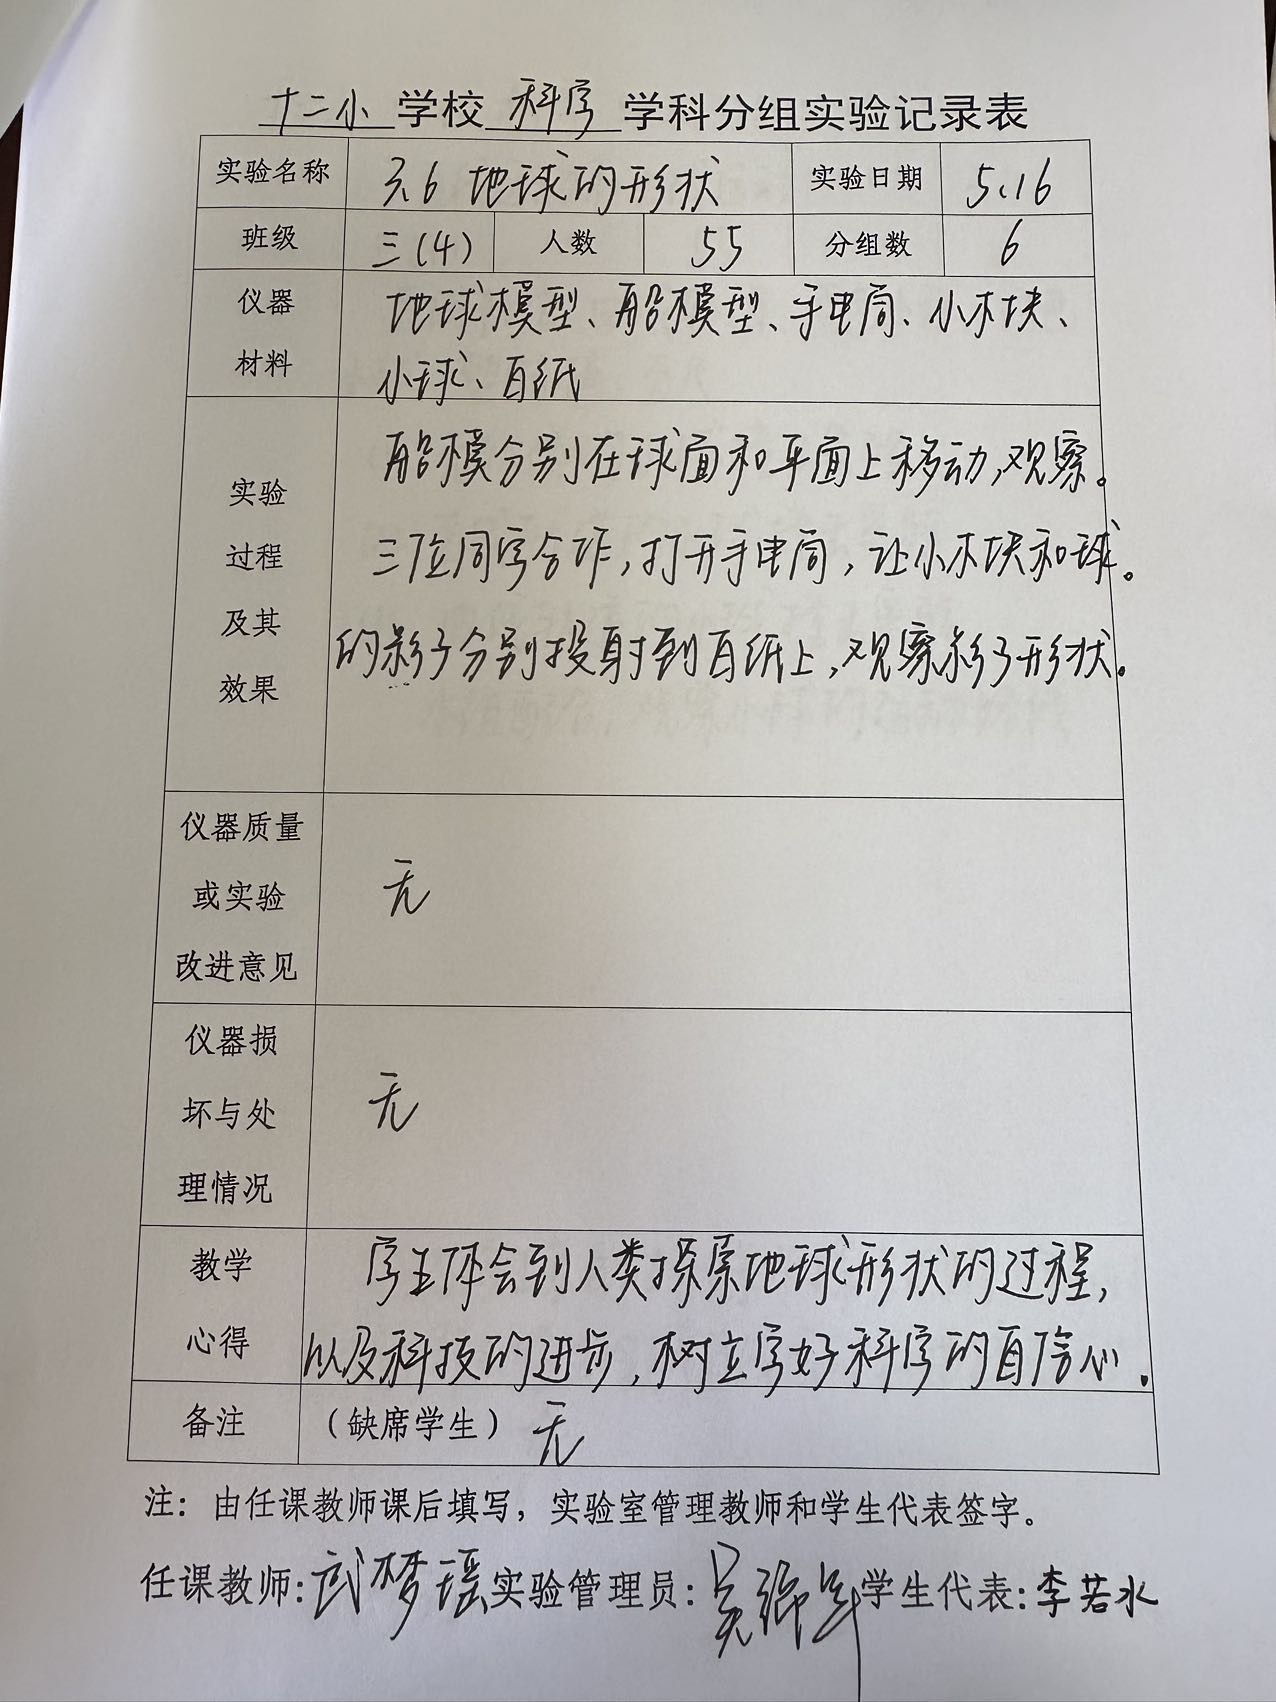 十二小 学校 科学 学科分组实验记录表
实验名称 3.6 地球的形状 实验日期 5.16
班级 三(4) 人数 55 分组数 6
仪器 地球模型、船模型、手电筒、小木块、
材料 小球、白纸
船模分别在球面和平面上移动,观察。
实验
三位同学合作,打开手电筒,让小木块和球。
过程
及其
的影子分别投射到白纸上,观察影子形状。
效果
仪器质量
或实验 无
改进意见
仪器损
坏与处 无
理情况
教学 学生体会到人类探索地球形状的过程,
心得 以及科技的进步,树立学好科学的自信心.
备注 (缺席学生) 无
注:由任课教师课后填写,实验室管理教师和学生代表签字。
任课教师:武梦瑶 实验管理员:吴 学生代表:李若水